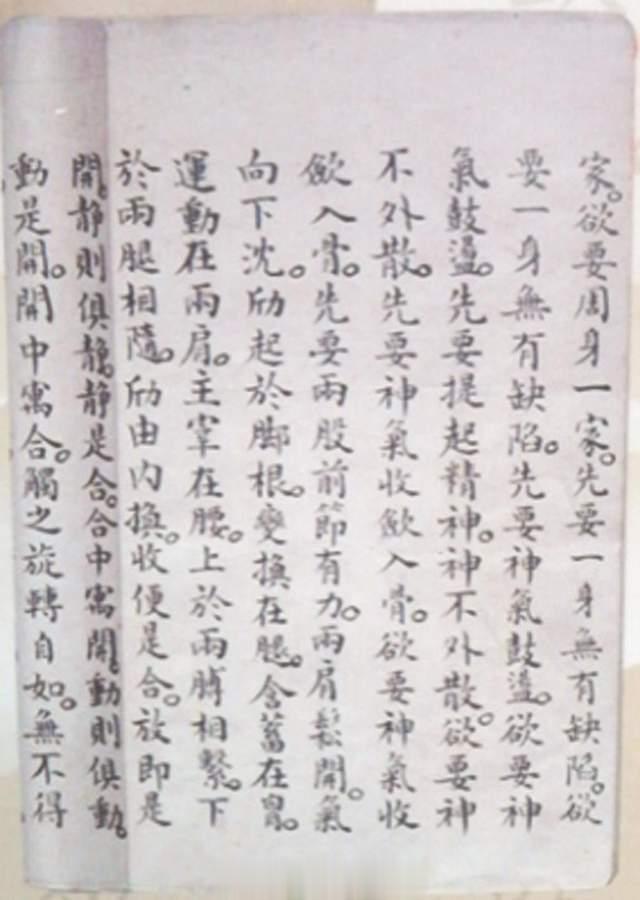 家。欲要周身一家。先要一身無有缺陷。欲
要一身無有缺陷。先要神氣鼓盪。欲要神
氣鼓盪。先要提起精神。神不外散。欲要神
不外散。先要神氣收歛入骨。欲要神氣收
歛入骨。先要兩股前節有力。兩肩鬆開。氣
向下沈。劤起於脚根。變換在腿。含蓄在胷。
運動在兩肩。主宰在腰。上於兩膊相繫。下
於兩腿相隨。劤由內換。收便是合。放即是
開。静則俱静。静是合。合中寓開。動則俱動。
動是開。開中寓合。觸之旋轉自如。無不得